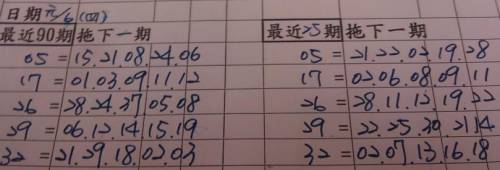 日期 5/6 (四)
最近90期拖下一期
05 = 15.21.08.24.06
17 = 01.03.09.11.12
26 = 28.24.37.05.08
29 = 06.12.14.15.19
32 = 21.29.18.02.03
最近25期拖下一期
05 = 21.22.02.19.28
17 = 02.06.08.09.11
26 = 28.11.12.19.22
29 = 22.25.30.21.14
32 = 02.07.13.16.18